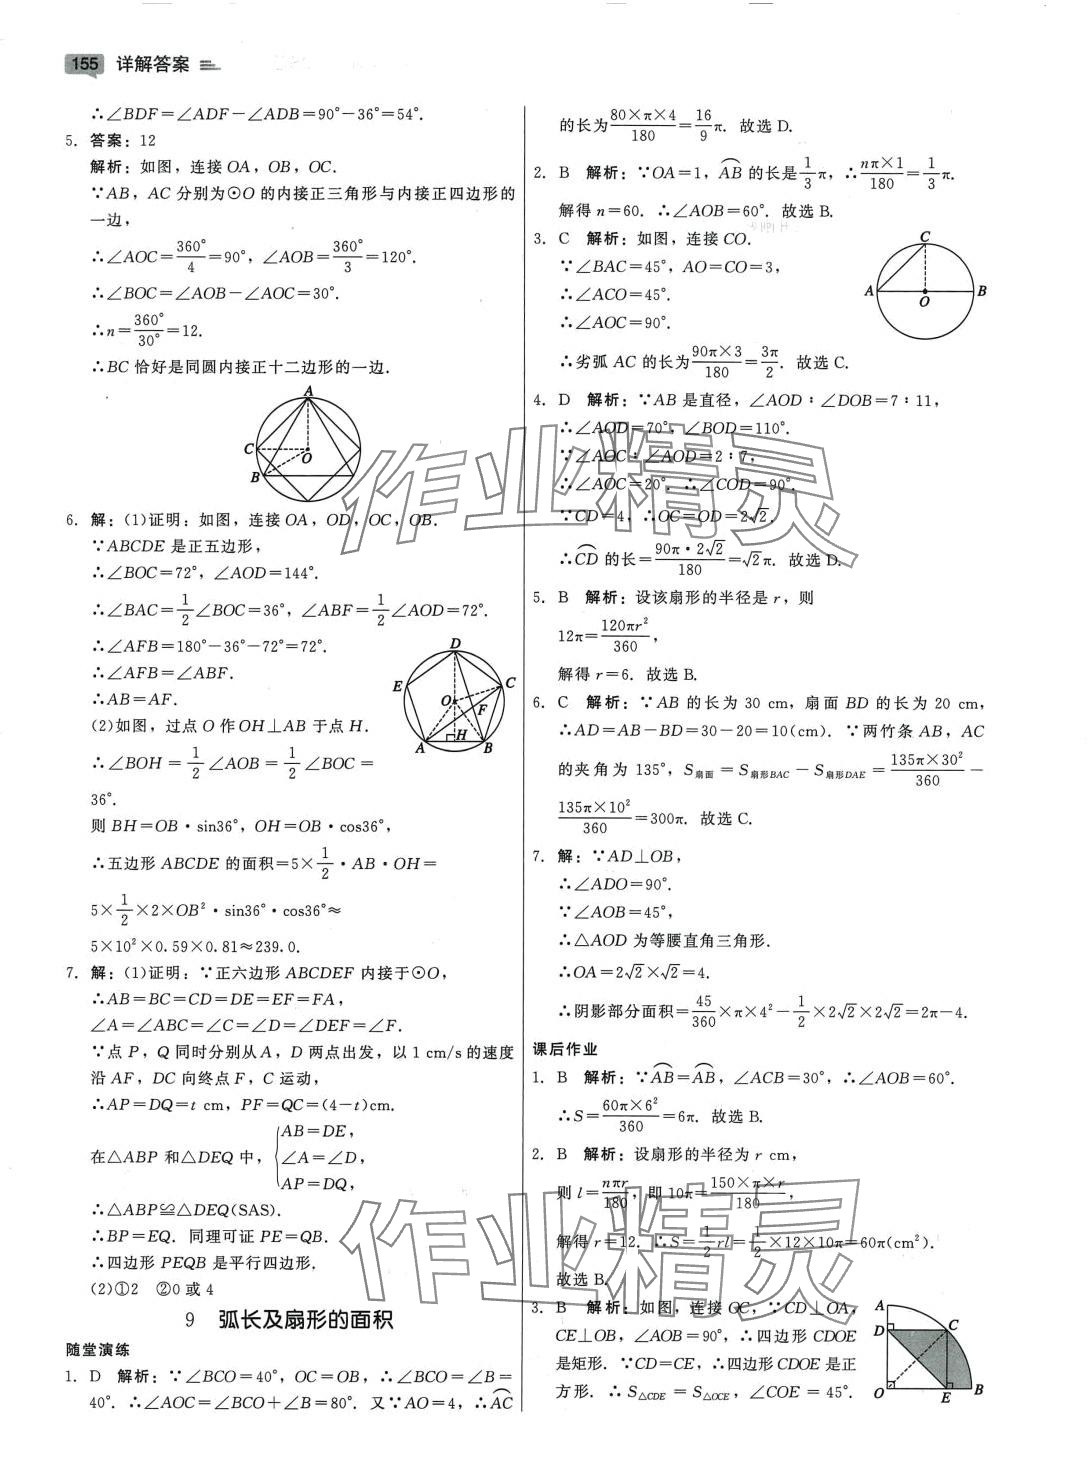 155 详解答案
∴∠BDF=∠ADF-∠ADB=90°-36°=54°.
5. 答案:12
解析:如图,连接OA,OB,OC.
∵AB,AC分别为⊙O的内接正三角形与内接正四边形的
一边,
∴∠AOC=360°/4=90°,∠AOB=360°/3=120°.
∴∠BOC=∠AOB-∠AOC=30°.
∴n=360°/30°=12.
∴BC恰好是同圆内接正十二边形的一边.
A
C
O
B
6. 解:(1)证明:如图,连接OA,OD,OC,OB.
∵ABCDE是正五边形,
∴∠BOC=72°,∠AOD=144°.
∴∠BAC=1/2∠BOC=36°,∠ABF=1/2∠AOD=72°.
∴∠AFB=180°-36°-72°=72°.
∴∠AFB=∠ABF.
∴AB=AF.
(2)如图,过点O作OH⊥AB于点H.
∴∠BOH=1/2∠AOB=1/2∠BOC=
36°.
D
E
C
O
F
H
A
B
则BH=OB·sin36°,OH=OB·cos36°,
∴五边形ABCDE的面积=5×1/2·AB·OH=
5×1/2×2×OB²·sin36°·cos36°≈
5×10²×0.59×0.81≈239.0.
7. 解:(1)证明:∵正六边形ABCDEF内接于⊙O,
∴AB=BC=CD=DE=EF=FA,
∠A=∠ABC=∠C=∠D=∠DEF=∠F.
∵点P,Q同时分别从A,D两点出发,以1 cm/s的速度
沿AF,DC向终点F,C运动,
∴AP=DQ=t cm,PF=QC=(4-t)cm.
在△ABP和△DEQ中,{AB=DE,
∠A=∠D,
AP=DQ,
∴△ABP≌△DEQ(SAS).
∴BP=EQ.同理可证PE=QB.
∴四边形PEQB是平行四边形.
(2)①2 ②0或4
9 弧长及扇形的面积
随堂演练
1. D 解析:∵∠BCO=40°,OC=OB,∴∠BCO=∠B=
40°.∴∠AOC=∠BCO+∠B=80°.又∵AO=4,∴⌒AC
的长为80×π×4/180=16/9π.故选D.
2. B 解析:∵OA=1,⌒AB的长是1/3π,∴nπ×1/180=1/3π.
解得n=60.∴∠AOB=60°.故选B.
3. C 解析:如图,连接CO.
∵∠BAC=45°,AO=CO=3,
∴∠ACO=45°.
∴∠AOC=90°.
∴劣弧AC的长为90π×3/180=3π/2.故选C.
C
A
O
B
4. D 解析:∵AB是直径,∠AOD∶∠DOB=7∶11,
∴∠AOD=70°,∠BOD=110°.
∵∠AOC∶∠AOD=2∶7,
∴∠AOC=20°.∴∠COD=90°.
∵CD=4,∴OC=OD=2√2.
∴⌒CD的长=90π·2√2/180=√2π.故选D.
5. B 解析:设该扇形的半径是r,则
12π=120πr²/360,
解得r=6.故选B.
6. C 解析:∵AB的长为30 cm,扇面BD的长为20 cm,
∴AD=AB-BD=30-20=10(cm).∵两竹条AB,AC
的夹角为135°,S扇面=S扇形BAC-S扇形DAE=135π×30²/360-
135π×10²/360=300π.故选C.
7. 解:∵AD⊥OB,
∴∠ADO=90°.
∵∠AOB=45°,
∴△AOD为等腰直角三角形.
∴OA=2√2×√2=4.
∴阴影部分面积=45/360×π×4²-1/2×2√2×2√2=2π-4.
课后作业
1. B 解析:∵⌒AB=⌒AB,∠ACB=30°,∴∠AOB=60°.
∴S=60π×6²/360=6π.故选B.
2. B 解析:设扇形的半径为r cm,
则l=nπr/180,即10π=150×π×r/180,
解得r=12.∴S=1/2rl=1/2×12×10π=60π(cm²).
故选B.
3. B 解析:如图,连接OC,∵CD⊥OA,
CE⊥OB,∠AOB=90°,∴四边形CDOE
是矩形.∵CD=CE,∴四边形CDOE是正
方形.∴S△CDE=S△OCE,∠COE=45°.
A
D
C
O
E
B
作业精灵
作业精灵